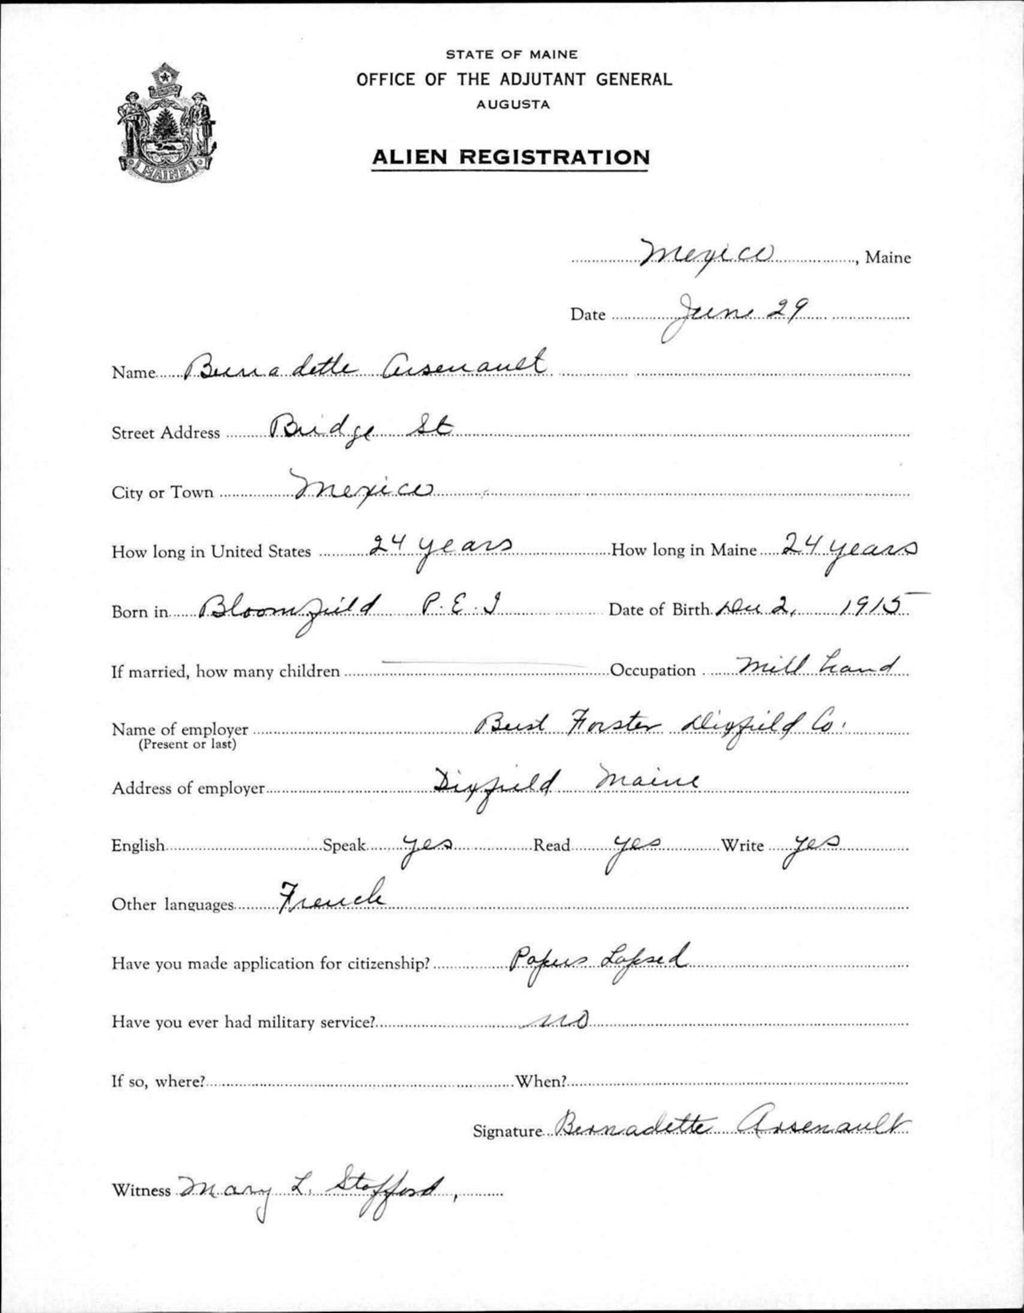 STATE OF MAINE
OFFICE OF THE ADJUTANT GENERAL
AUGUSTA
ALIEN REGISTRATION
MAINE
Mexico, Maine
Date June 29
Name Bernadette Arsenault
Street Address Bridge St
City or Town Mexico
How long in United States 24 years How long in Maine 24 years
Born in Bloomfield P.E.I Date of Birth Dec 2, 1915
If married, how many children Occupation Mill hand
Name of employer Forster Dixfield Co.
(Present or last)
Address of employer Dixfield Maine
English Speak yes Read yes Write yes
Other languages French
Have you made application for citizenship? Papers Lapsed
Have you ever had military service? no
If so, where? When?
Signature Bernadette Arsenault
Witness Mary L. Stofford,